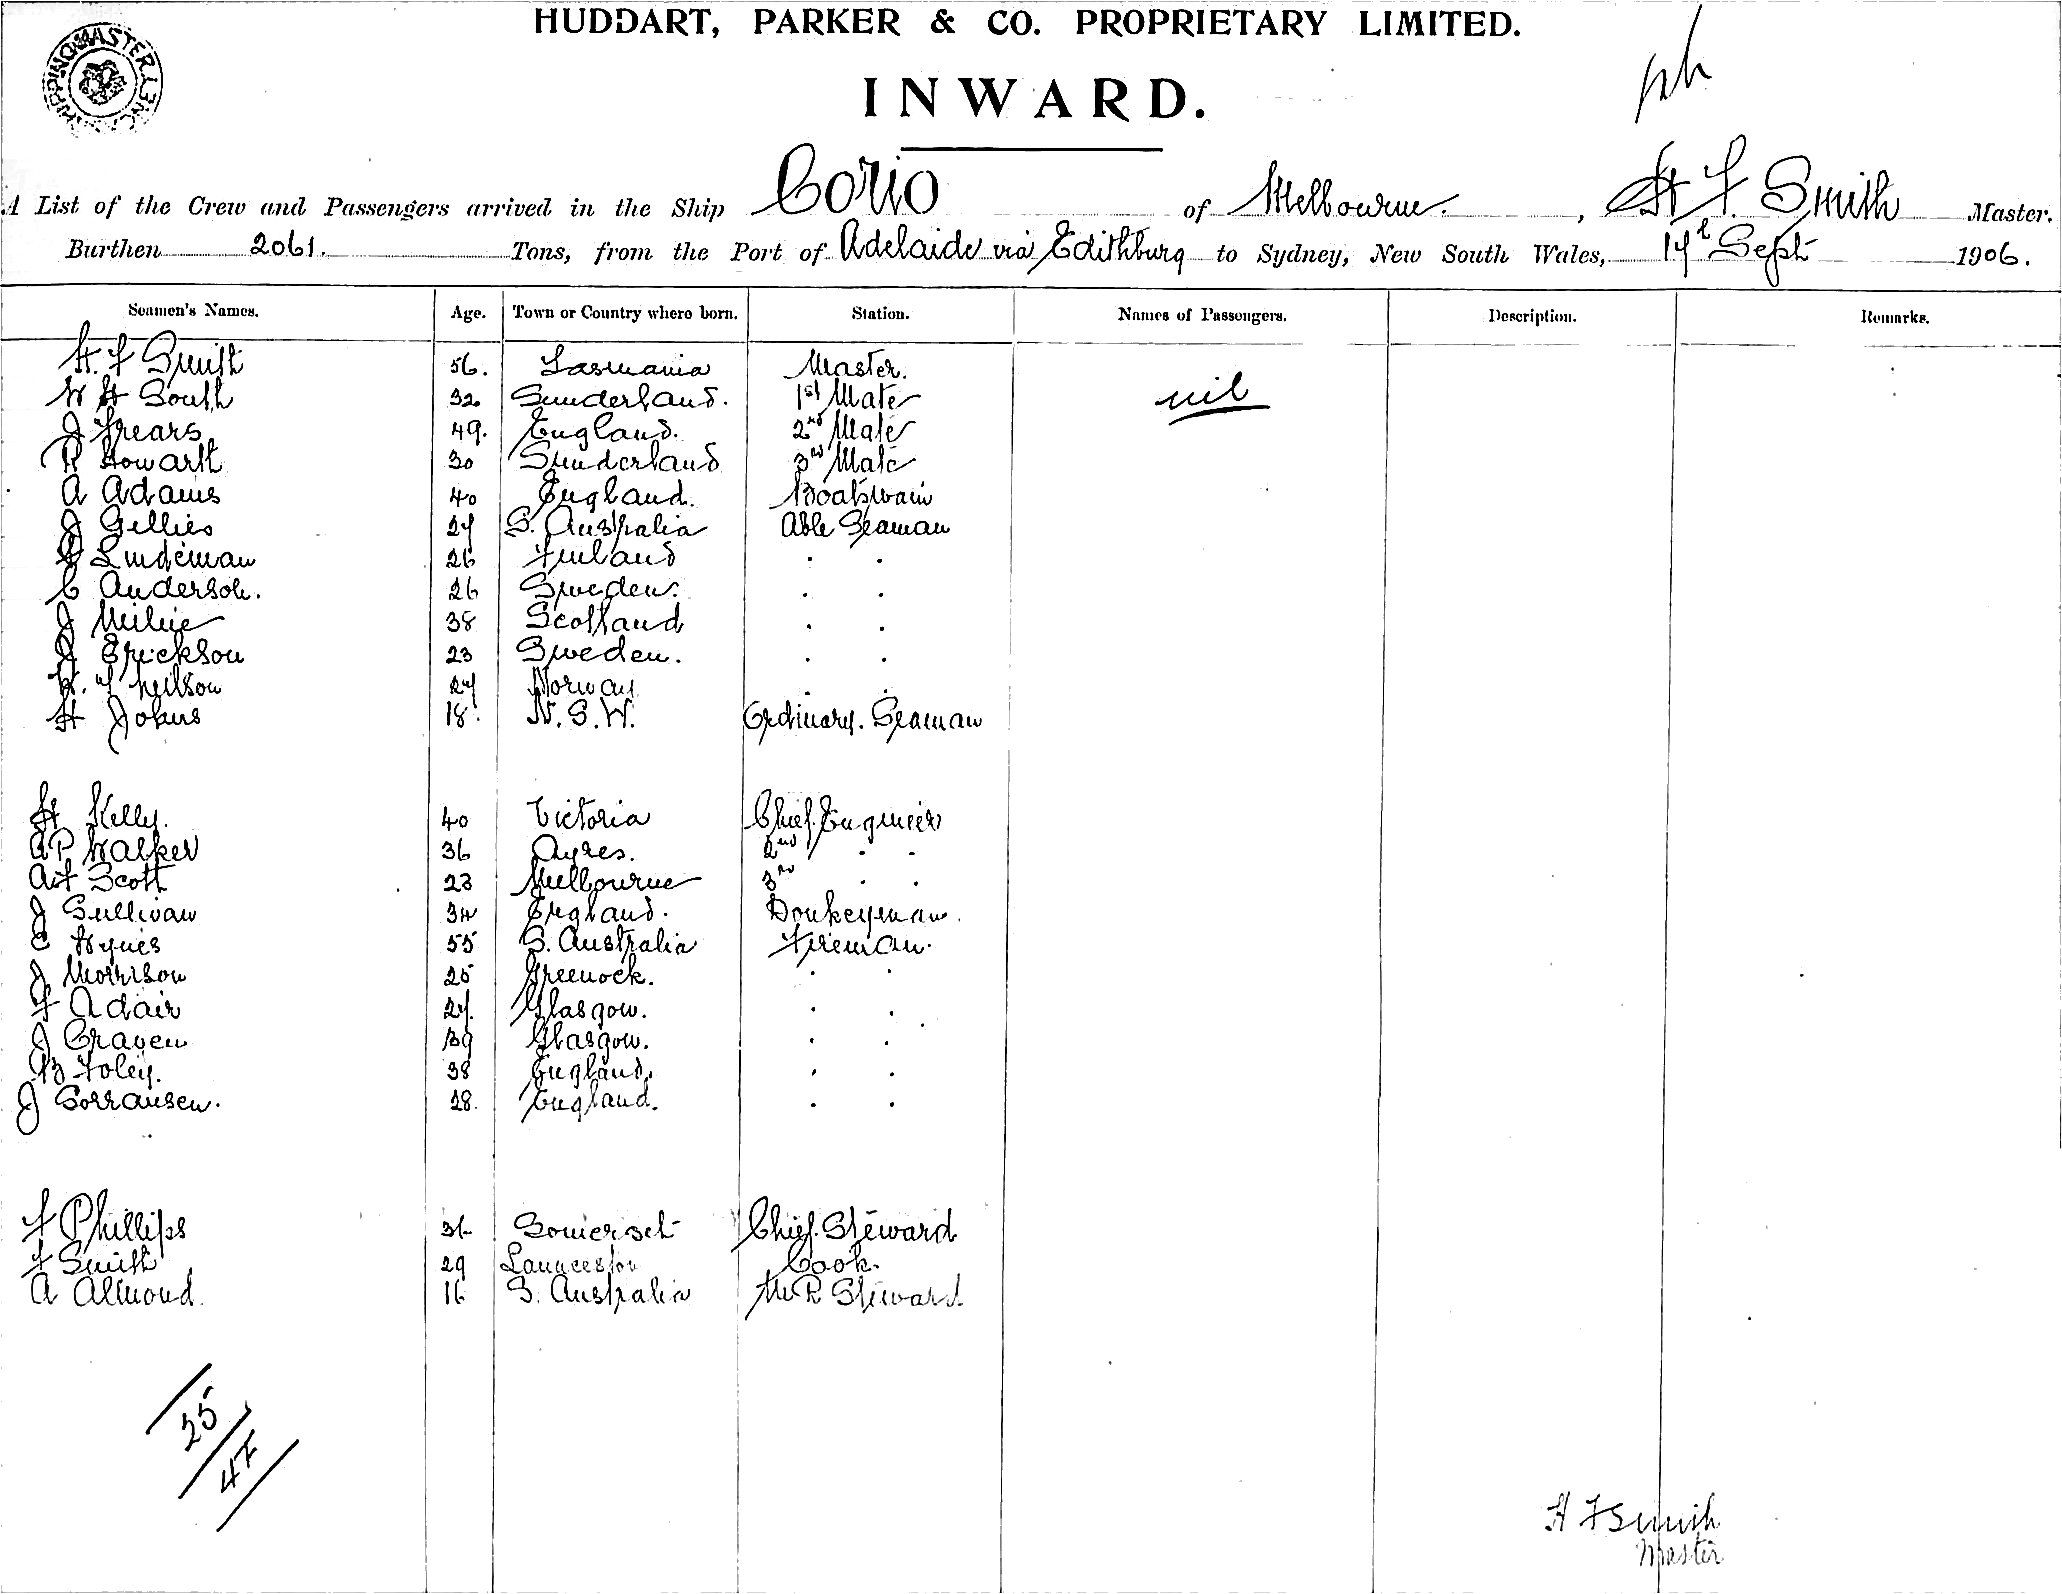 HUDDART, PARKER & CO. PROPRIETARY LIMITED.
INWARD.
A List of the Crew and Passengers arrived in the Ship Corio of Melbourne. , H F Smith Master.
Burthen 2061. Tons, from the Port of Adelaide via Edithburg to Sydney, New South Wales, 14th Sept 1906.
Seamen's Names. Age. Town or Country where born. Station. Names of Passengers. Description. Remarks.
H. F Smith 56. Tasmania Master.
W H South 32 Sunderland. 1st Mate nil
J Spears 49. England. 2nd Mate
R Howarth 30 Sunderland 3rd Mate
A Adams 40 England. Boatswain
J Gillies 24 S. Australia Able Seaman
Lindeman 26 Finland . .
C Anderson. 26 Sweden. . .
J Milne 38 Scotland . .
J Erickson 23 Sweden. . .
Neilson 24 Norway . .
H Johns 18 N. S. W. Ordinary. Seaman
H Kelly. 40 Victoria Chief Engineer
A P Walker 36 Ayres. 2nd . .
Scott 23 Melbourne 3rd . .
J Sullivan 34 England. Donkeyman.
C Hynes 55 S. Australia Fireman.
J Morrison 25 Greenock. . .
F Adair 24. Glasgow. . .
J Craven 39 Glasgow. . .
B Foley. 38 England. . .
J Sorrausen. 28. England. . .
F Phillips 36 Somerset Chief Steward
F Smith 29 Launceston Cook.
A Almond. 16 S. Australia M. R Steward
25
47
H F Smith
Master